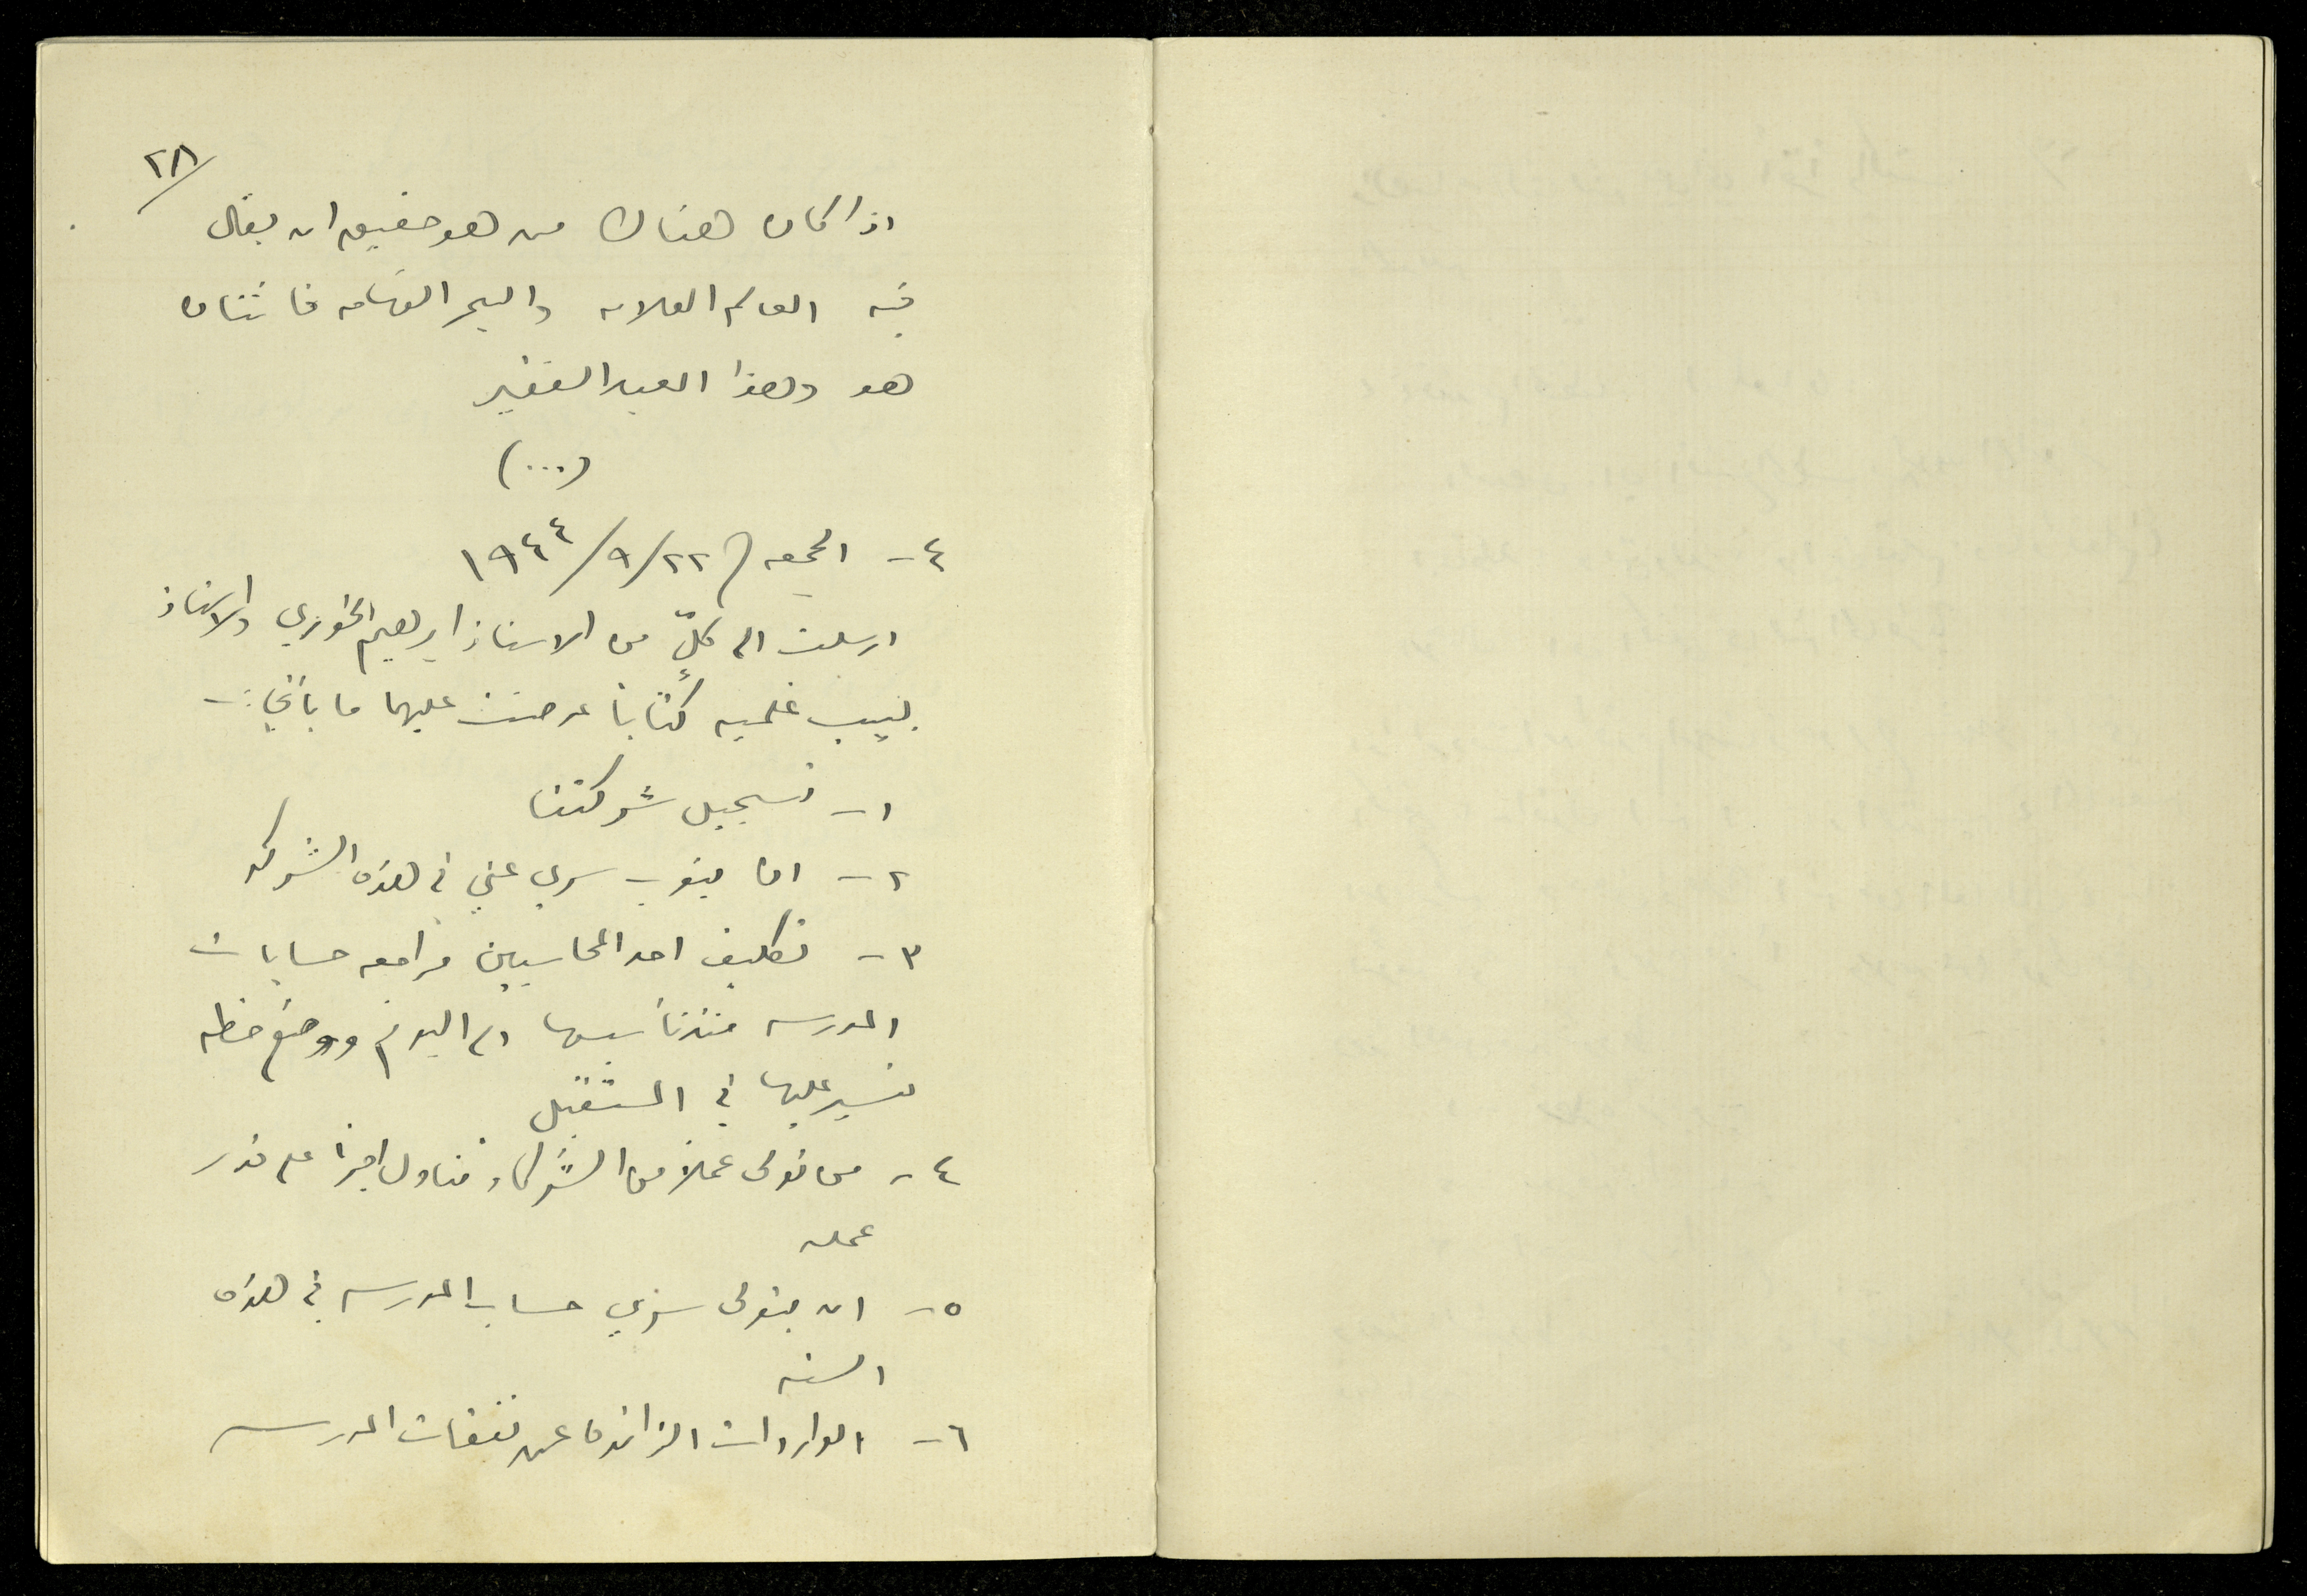 ٢٨/
اذا كان هناك من هو حقيق ان يقال
فيه العالم العلامه والبحر الفهامه فاثنان
هو وهذا العبد الفقير
(...)
٤- الجمعه ٢٢/٩/١٩٤٤
ارسلت الى كلٍّ من الاستاذ ابرهيم الخوري والاستاذ
لبيب غلميه كتابا عرضت عليهما ما يأتي:-
١- تسجيل شركتنا
٢- ان ينوب سري عني في هذه الشركه
٣- تكليف احد المحاسبين مراجعه حسابات
المدرسه منذ تأسيسها الى اليوم ووضع خطه
نسير عليها في المستقبل
٤- من تولى عملاً من الشركاء تناول اجراً على قدر
عمله
٥- ان يتولى سري حساب المدرسه في هذه
السنه
٦- الواردات الزائده عن نفقات المدرسه